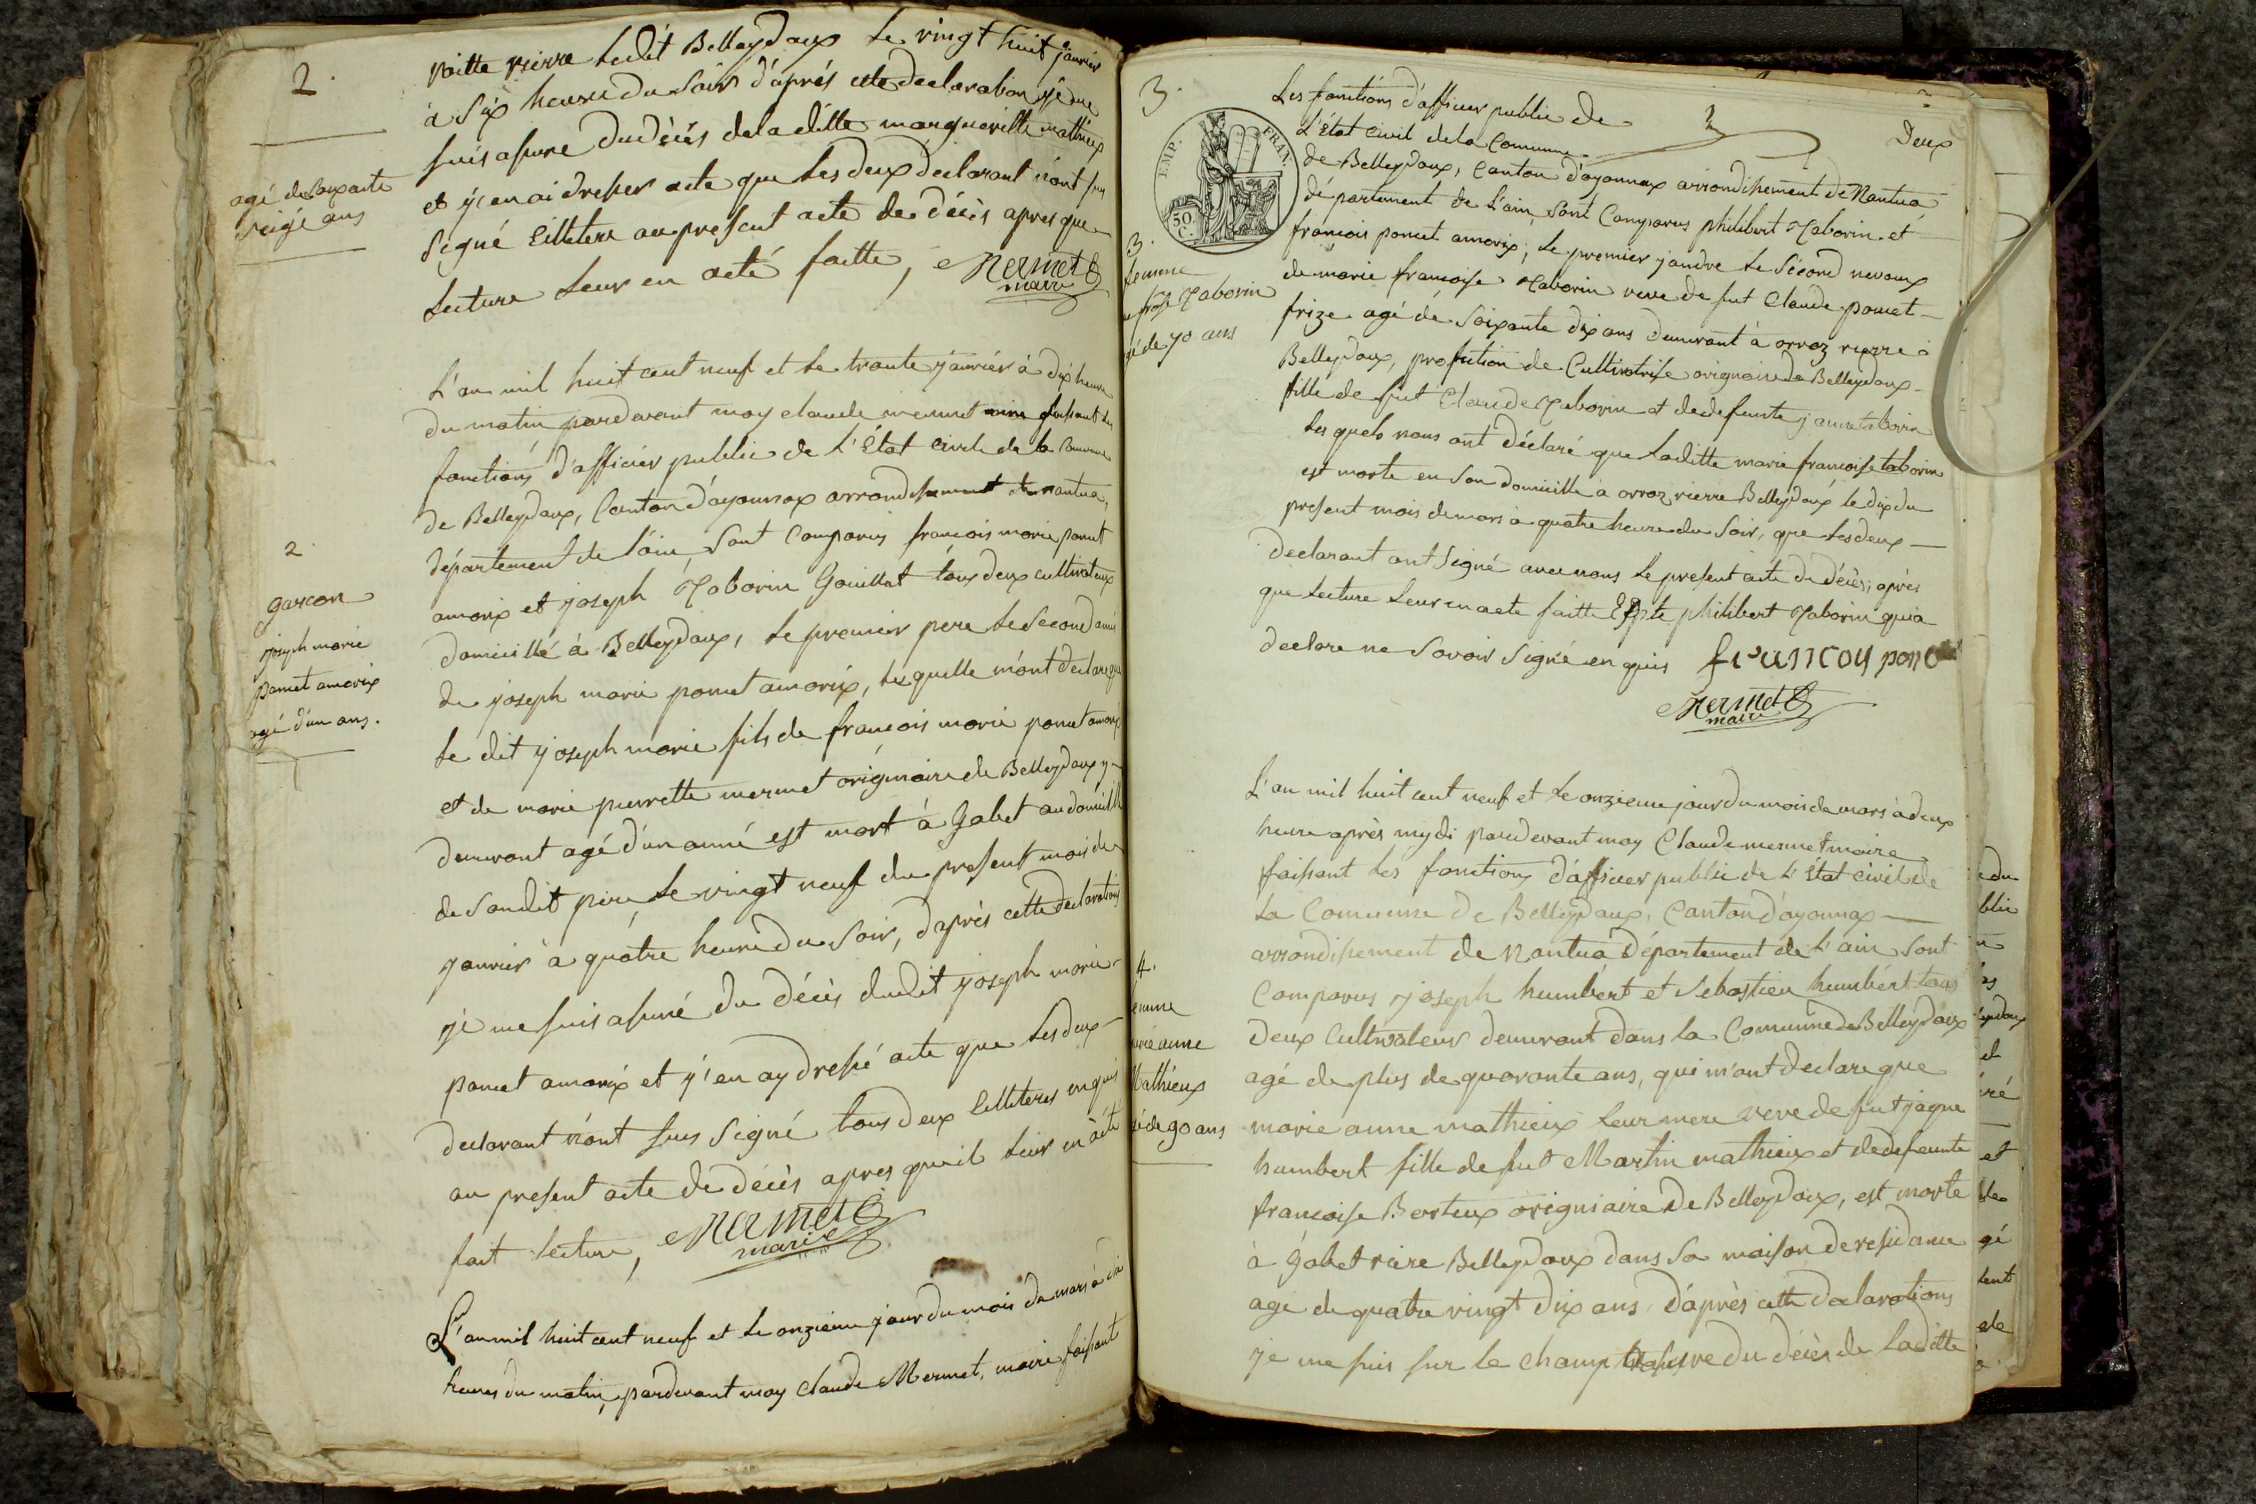 2.
agé de soixante
seize ans
rière ledit Belleydoux le vingt huit janvier
à six heure du soir d'aprés cette declaration je me
suis asuré du décès de la ditte margueritte mathieux
et j'en ai dresser acte que les deux déclarant n'ont
signé illetere au present acte de décès apres que
lecture leur en acté faitte, Mermet
maire
2.
garcon
joseph marie
poncet amorix
agé d'un ans.
L'an mil huit cent neuf et le trante janvier à dix heure
du matin pardevant moy claude mermet maire faisant les
fonctions d'afficier public de l'État civil de la commune
de Belleydoux, Canton d'ayonnax arrondisement de nantua,
département de l'ain, sont comparus francois marie poncet
amorix et joseph Taborin Gouillat tous deux cultivateux
domicillé à Belleydoux, le premier pere le second ami
de joseph marie poncet amorix, lesquelle m'ont declaré que
le dit joseph marie fils de francois marie poncet amorix
et de marie pierrette mermet originaire de Belleydoux y
demeurant agé d'un anné est mort à Gobet au domicille
de son dit pere, le vingt neuf du present mois de
janvier à quatre heure du soir, d'aprés cette declarations
je me suis asuré du décès dudit joseph marie
poncet amorix et j'en ay dressé acte que les deux
declarant n'ont signé tous deux illeteres enquis
au present acte de décès apres qu'il leur en acté
fait lecture, Mermet
maire
L'an mil huit cent neuf et le onzieme jour du mois de mars à dix
heures du matin, pardevant moy claude Mermet, maire faisant
3.
Deux
EMP. FRAN.
50 C.
Les fonctions d'afficier public de
L'État civil de la Commune
de Belleydoux, Canton d'ayonnax arrondisement de Nantua
département de l'ain, sont Comparus philibert Taborin et
francois poncet amorix, le premier jandre le sécond neveux
de marie francoise Taborin veve de fut Claude poncet
frize agé de soixante dix ans demeurant à orvoz rierre
Belleydoux, profection de Cultivatrise orignaire de Belleydoux
fille de fut Claude Taborin et de defeunte
Lesquels nous ont déclaré que laditte marie francoise taborin
est morte en son domicille à orvoz rierre Belleydoux le dix du
present mois de mars à quatre heure du soir, que les deux
declarant ont signé avec nous le present acte de décès, aprés
que lecture leur en acte faitte philibert Taborin qui a
declare ne savoir signé enquis francoy ponc
Mermet
maire
3.
femme
Taborin
agé de 70 ans
L'an mil huit cent neuf et le onzieme jour du mois de mars à deux
heure après mydi pardevant moy Claude mermet maire
faisant les fonctions d'afficier public de l'État civil de
La Commune de Belleydoux, Canton d'ayonnax
arrondisement de Nantua Département de l'ain sont
Comparus joseph humbért et sebastien humbért tous
deux Cultivateur demeurant dans la Commune de Belleydoux
agé de plus de quarante ans, qui m'ont declare que
marie anne mathieux leur mere veve de fut jaque
humbert fille de fut Martin mathieux et de defeunte
francoise Berteux orignaire de Belleydoux, est morte
à Gobet riere Belleydoux dans sa maison de residance
age de quatre vingt dix ans, d'aprés cette declarations
je me suis sur le champ asuré du décès de laditte
4.
femme
marie anne
Mathieux
agé de 90 ans